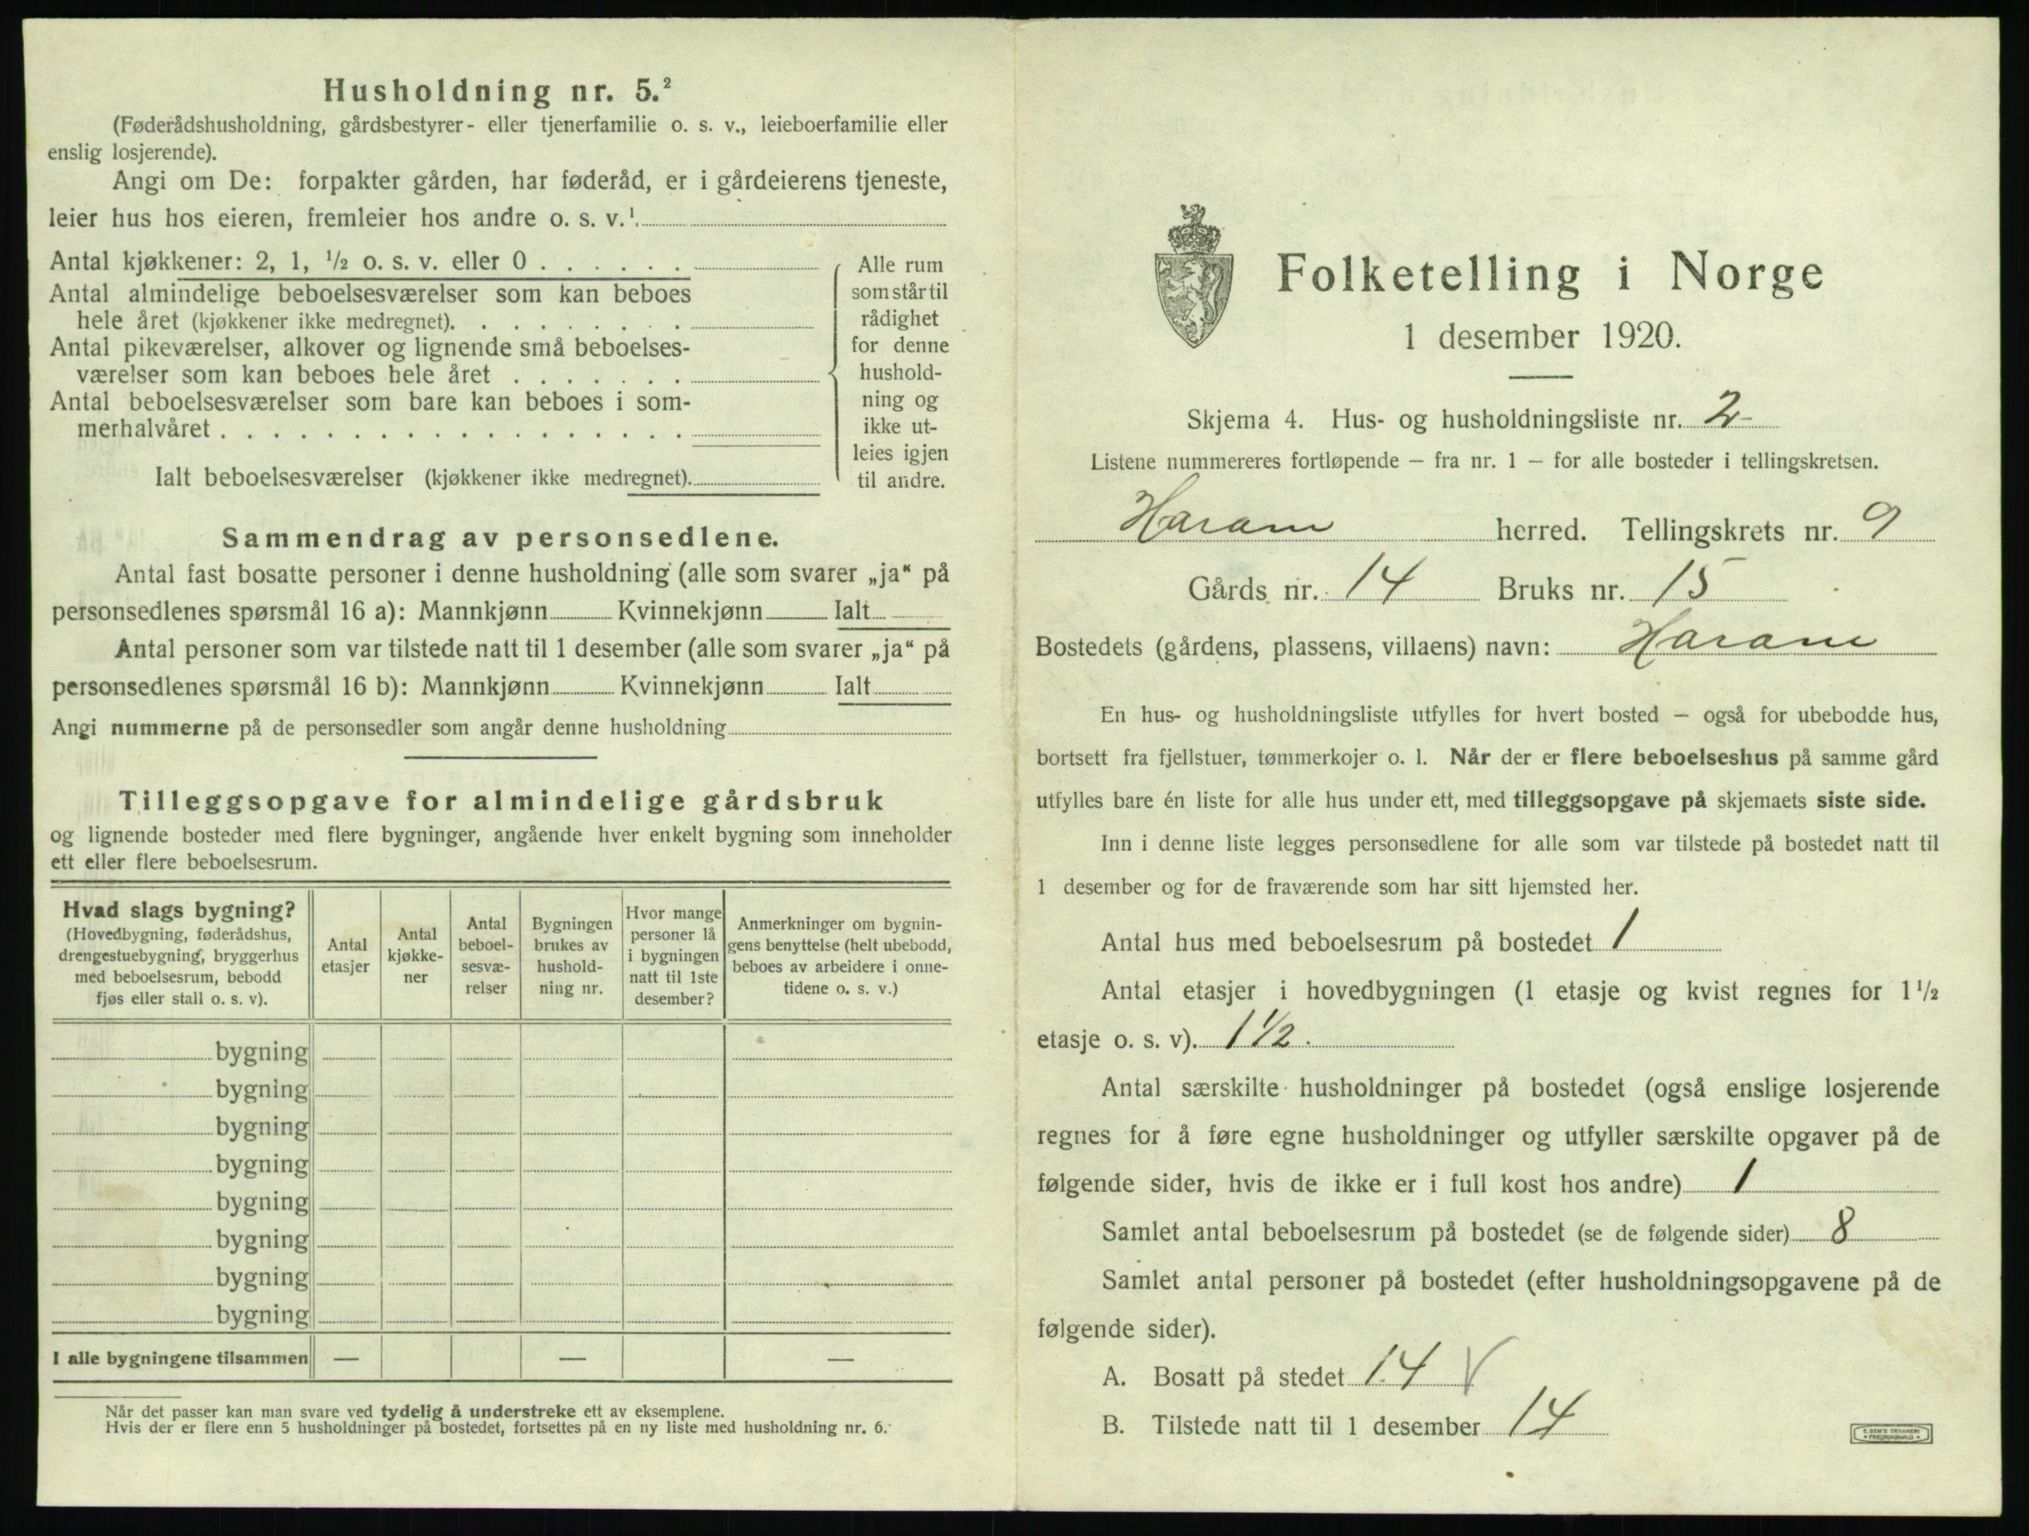 Husholdning nr. 5.²
(Føderådshusholdning, gårdsbestyrer- eller tjenerfamilie o. s. v., leieboerfamilie eller
enslig losjerende).
Angi om De: forpakter gården, har føderåd, er i gårdeierens tjeneste,
leier hus hos eieren, fremleier hos andre o. s. v.¹
Antal kjøkkener: 2, 1, ½ o. s. v. eller 0 . . . . . .
Antal almindelige beboelsesværelser som kan beboes
hele året (kjøkkener ikke medregnet). . . . . . . . .
Antal pikeværelser, alkover og lignende små beboelses-
værelser som kan beboes hele året . . . . . . .
Antal beboelsesværelser som bare kan beboes i som-
merhalvåret . . . . . . . . . . . . . . . . . .
Ialt beboelsesværelser (kjøkkener ikke medregnet).
Alle rum
som står til
rådighet
for denne
hushold-
ning og
ikke ut-
leies igjen
til andre.
Sammendrag av personsedlene.
Antal fast bosatte personer i denne husholdning (alle som svarer „ja“ på
personsedlenes spørsmål 16 a): Mannkjønn Kvinnekjønn Ialt
Antal personer som var tilstede natt til 1 desember (alle som svarer „ja“ på
personsedlenes spørsmål 16 b): Mannkjønn Kvinnekjønn Ialt
Angi nummerne på de personsedler som angår denne husholdning
Tilleggsopgave for almindelige gårdsbruk
og lignende bosteder med flere bygninger, angående hver enkelt bygning som inneholder
ett eller flere beboelsesrum.
Hvad slags bygning?
(Hovedbygning, føderådshus,
drengestuebygning, bryggerhus
med beboelsesrum, bebodd
fjøs eller stall o. s. v).
Antal
etasjer
Antal
kjøkke-
ner
Antal
beboel-
sesvæ-
relser
Bygningen
brukes av
hushold-
ning nr.
Hvor mange
personer lå
i bygningen
natt til 1ste
desember?
Anmerkninger om bygnin-
gens benyttelse (helt ubebodd,
beboes av arbeidere i onne-
tidene o. s. v.)
bygning
bygning
bygning
bygning
bygning
bygning
bygning
bygning
I alle bygningene tilsammen — — —
Når det passer kan man svare ved tydelig å understreke ett av eksemplene.
Hvis der er flere enn 5 husholdninger på bostedet, fortsettes på en ny liste med husholdning nr. 6.
Folketelling i Norge
1 desember 1920.
Skjema 4. Hus- og husholdningsliste nr. 2
Listene nummereres fortløpende – fra nr. 1 – for alle bosteder i tellingskretsen.
Haram herred. Tellingskrets nr. 9
Gårds nr. 14 Bruks nr. 15
Bostedets (gårdens, plassens, villaens) navn: Haram
En hus- og husholdningsliste utfylles for hvert bosted – også for ubebodde hus,
bortsett fra fjellstuer, tømmerkojer o. l. Når der er flere beboelseshus på samme gård
utfylles bare én liste for alle hus under ett, med tilleggsopgave på skjemaets siste side.
Inn i denne liste legges personsedlene for alle som var tilstede på bostedet natt til
1 desember og for de fraværende som har sitt hjemsted her.
Antal hus med beboelsesrum på bostedet 1
Antal etasjer i hovedbygningen (1 etasje og kvist regnes for 1½
etasje o. s. v). 1½.
Antal særskilte husholdninger på bostedet (også enslige losjerende
regnes for å føre egne husholdninger og utfyller særskilte opgaver på de
følgende sider, hvis de ikke er i full kost hos andre) 1
Samlet antal beboelsesrum på bostedet (se de følgende sider) 8
Samlet antal personer på bostedet (efter husholdningsopgavene på de
følgende sider).
A. Bosatt på stedet 14 V
B. Tilstede natt til 1 desember 14